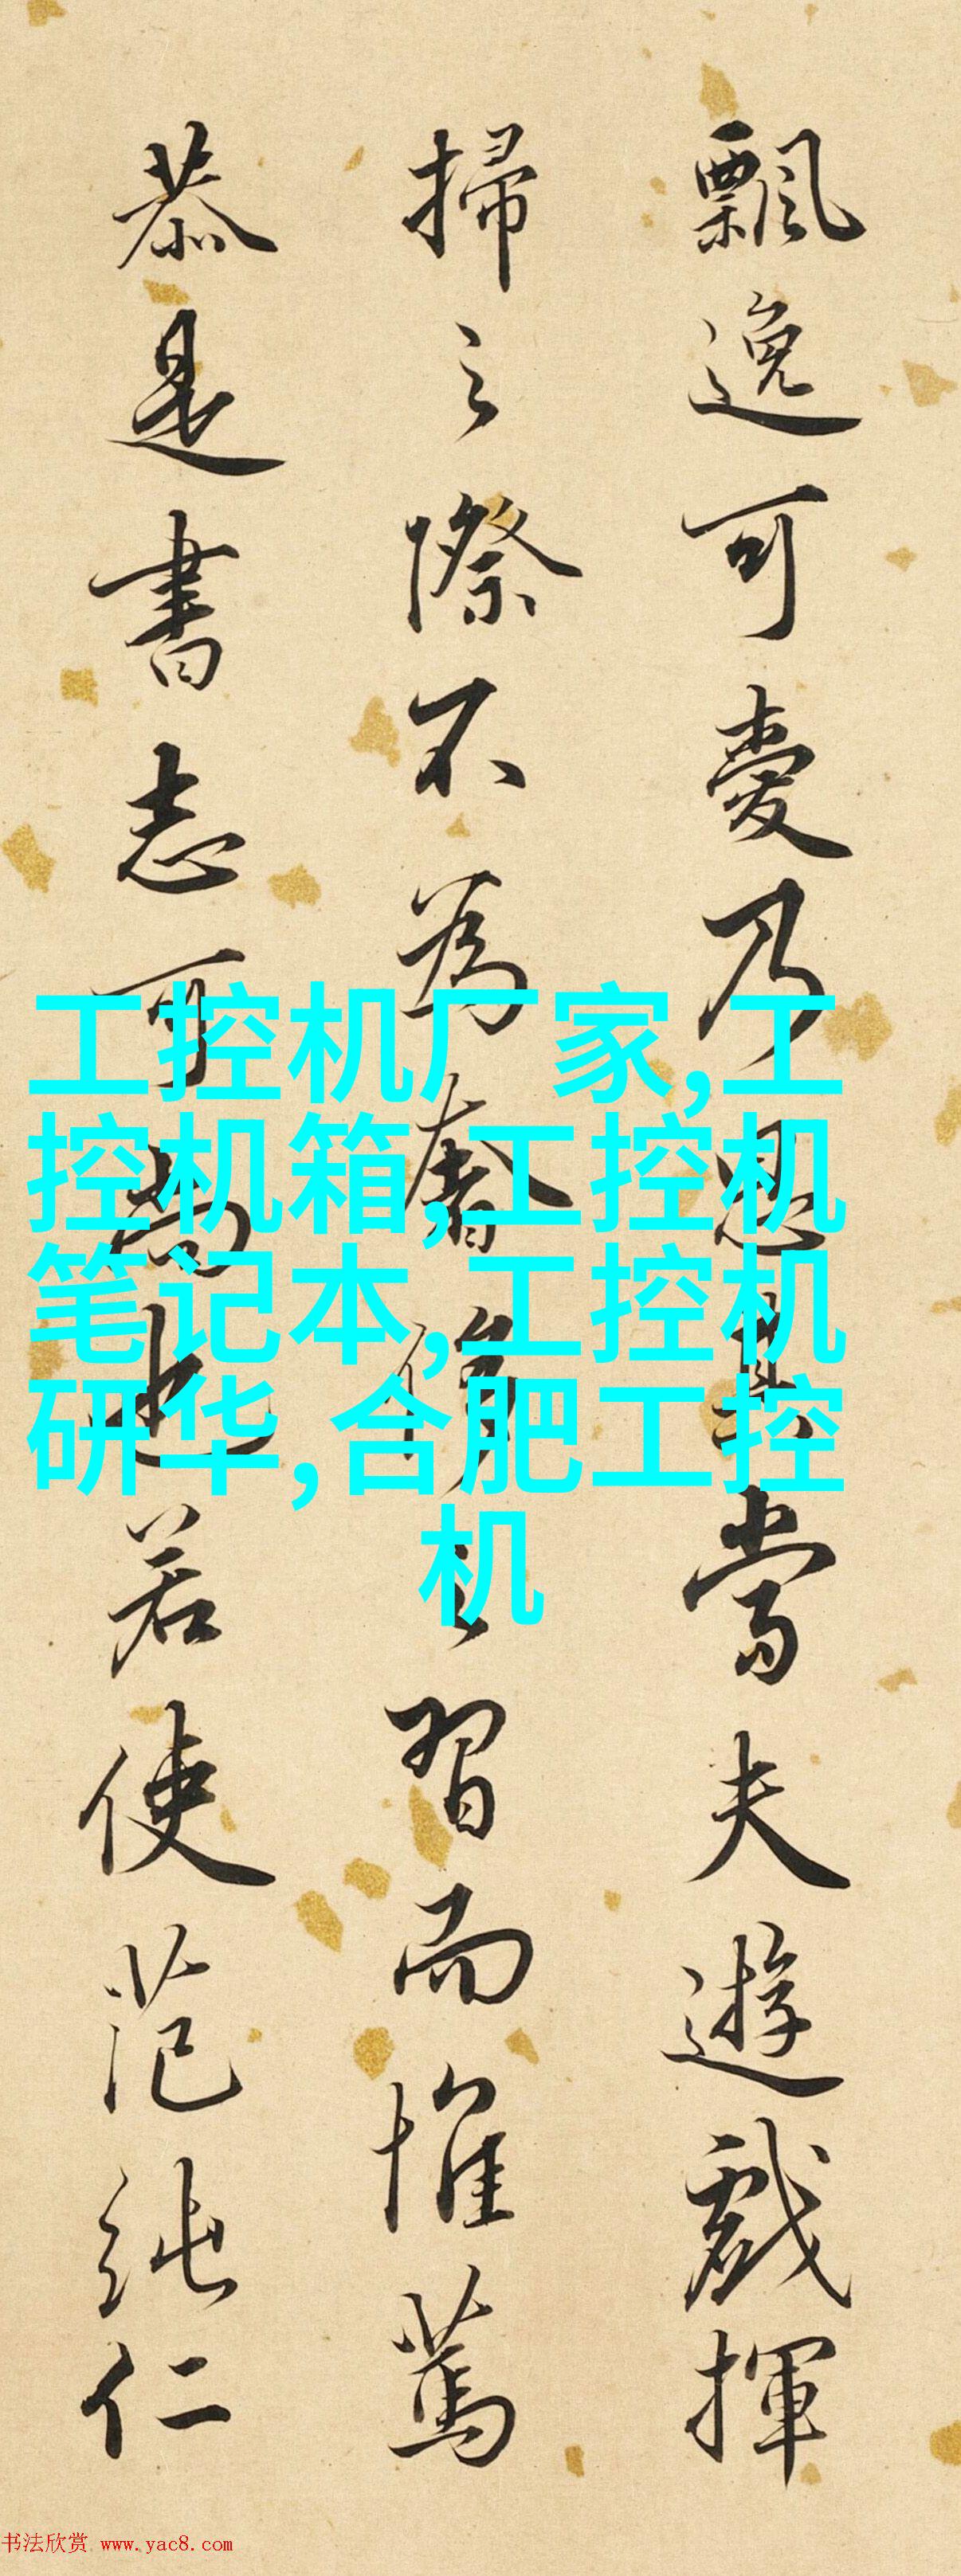 飄逸可愛乃思其當夫遊戲揮
掃之際不為奢侈之習而惟篤
恭是書志可尚也若使范純仁
工控机厂家,工
控机箱,工控机
笔记本,工控机
研华,合肥工控
机
书法欣赏 www.yac8.com